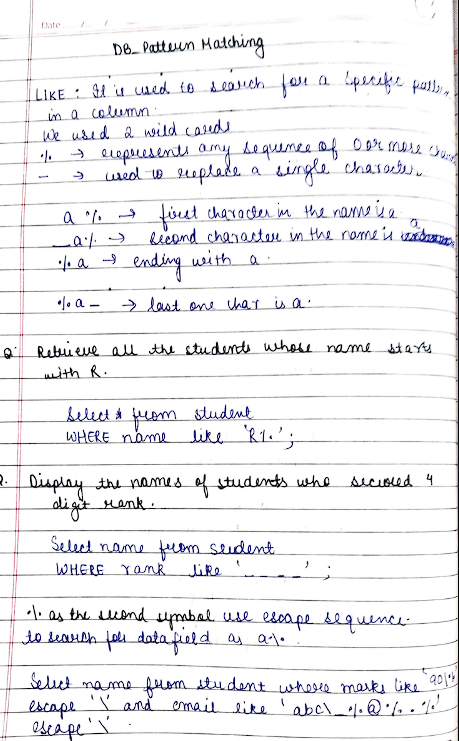 Date / /
DB_Pattern Matching
LIKE : It is used to search for a specific
in a column.
We used 2 wild cards
% → represents any sequence of 0 or more
_ → used to replace a single character.
a % → first character in the name is a
_a% → second character in the name is a
% a → ending with a.
% a _ → last one char is a.
Q Retrieve all the students whose name starts
with R.
Select * from student
WHERE name like 'R%';
Q. Display the names of students who secured 4
digit rank.
Select name from student
WHERE rank like '_ _ _ _' ;
% as the second symbol use escape sequence
to search for data field as a%.
Select name from student where marks like
escape '\' and email like 'abc\_%@%.%'
escape '\'